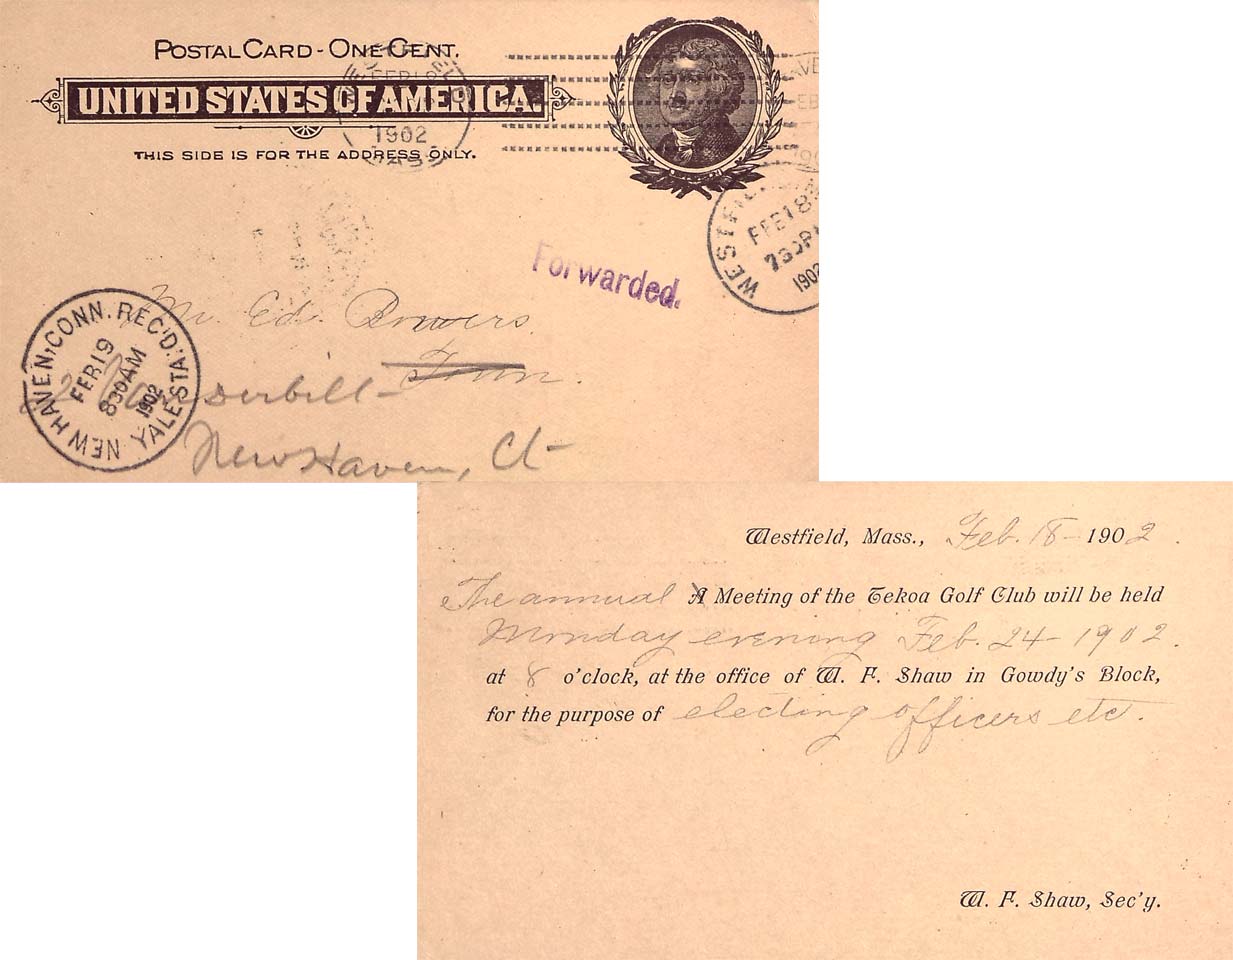 POSTAL CARD - ONE CENT.
UNITED STATES OF AMERICA.
THIS SIDE IS FOR THE ADDRESS ONLY.
FEB 18
1902
MASS
WESTFIEL
FEB 18
730P
1902
Forwarded.
Mr. Ed. Bowers
Town.
NEW HAVEN, CONN. REC'D. YALE STA.
FEB 19
830AM
1902
New Haven, Ct-
Westfield, Mass., Feb. 18 - 1902.
The annual A Meeting of the Tekoa Golf Club will be held
Monday evening Feb. 24 - 1902.
at 8 o'clock, at the office of W. F. Shaw in Gowdy's Block,
for the purpose of electing officers etc.
W. F. Shaw, Sec'y.